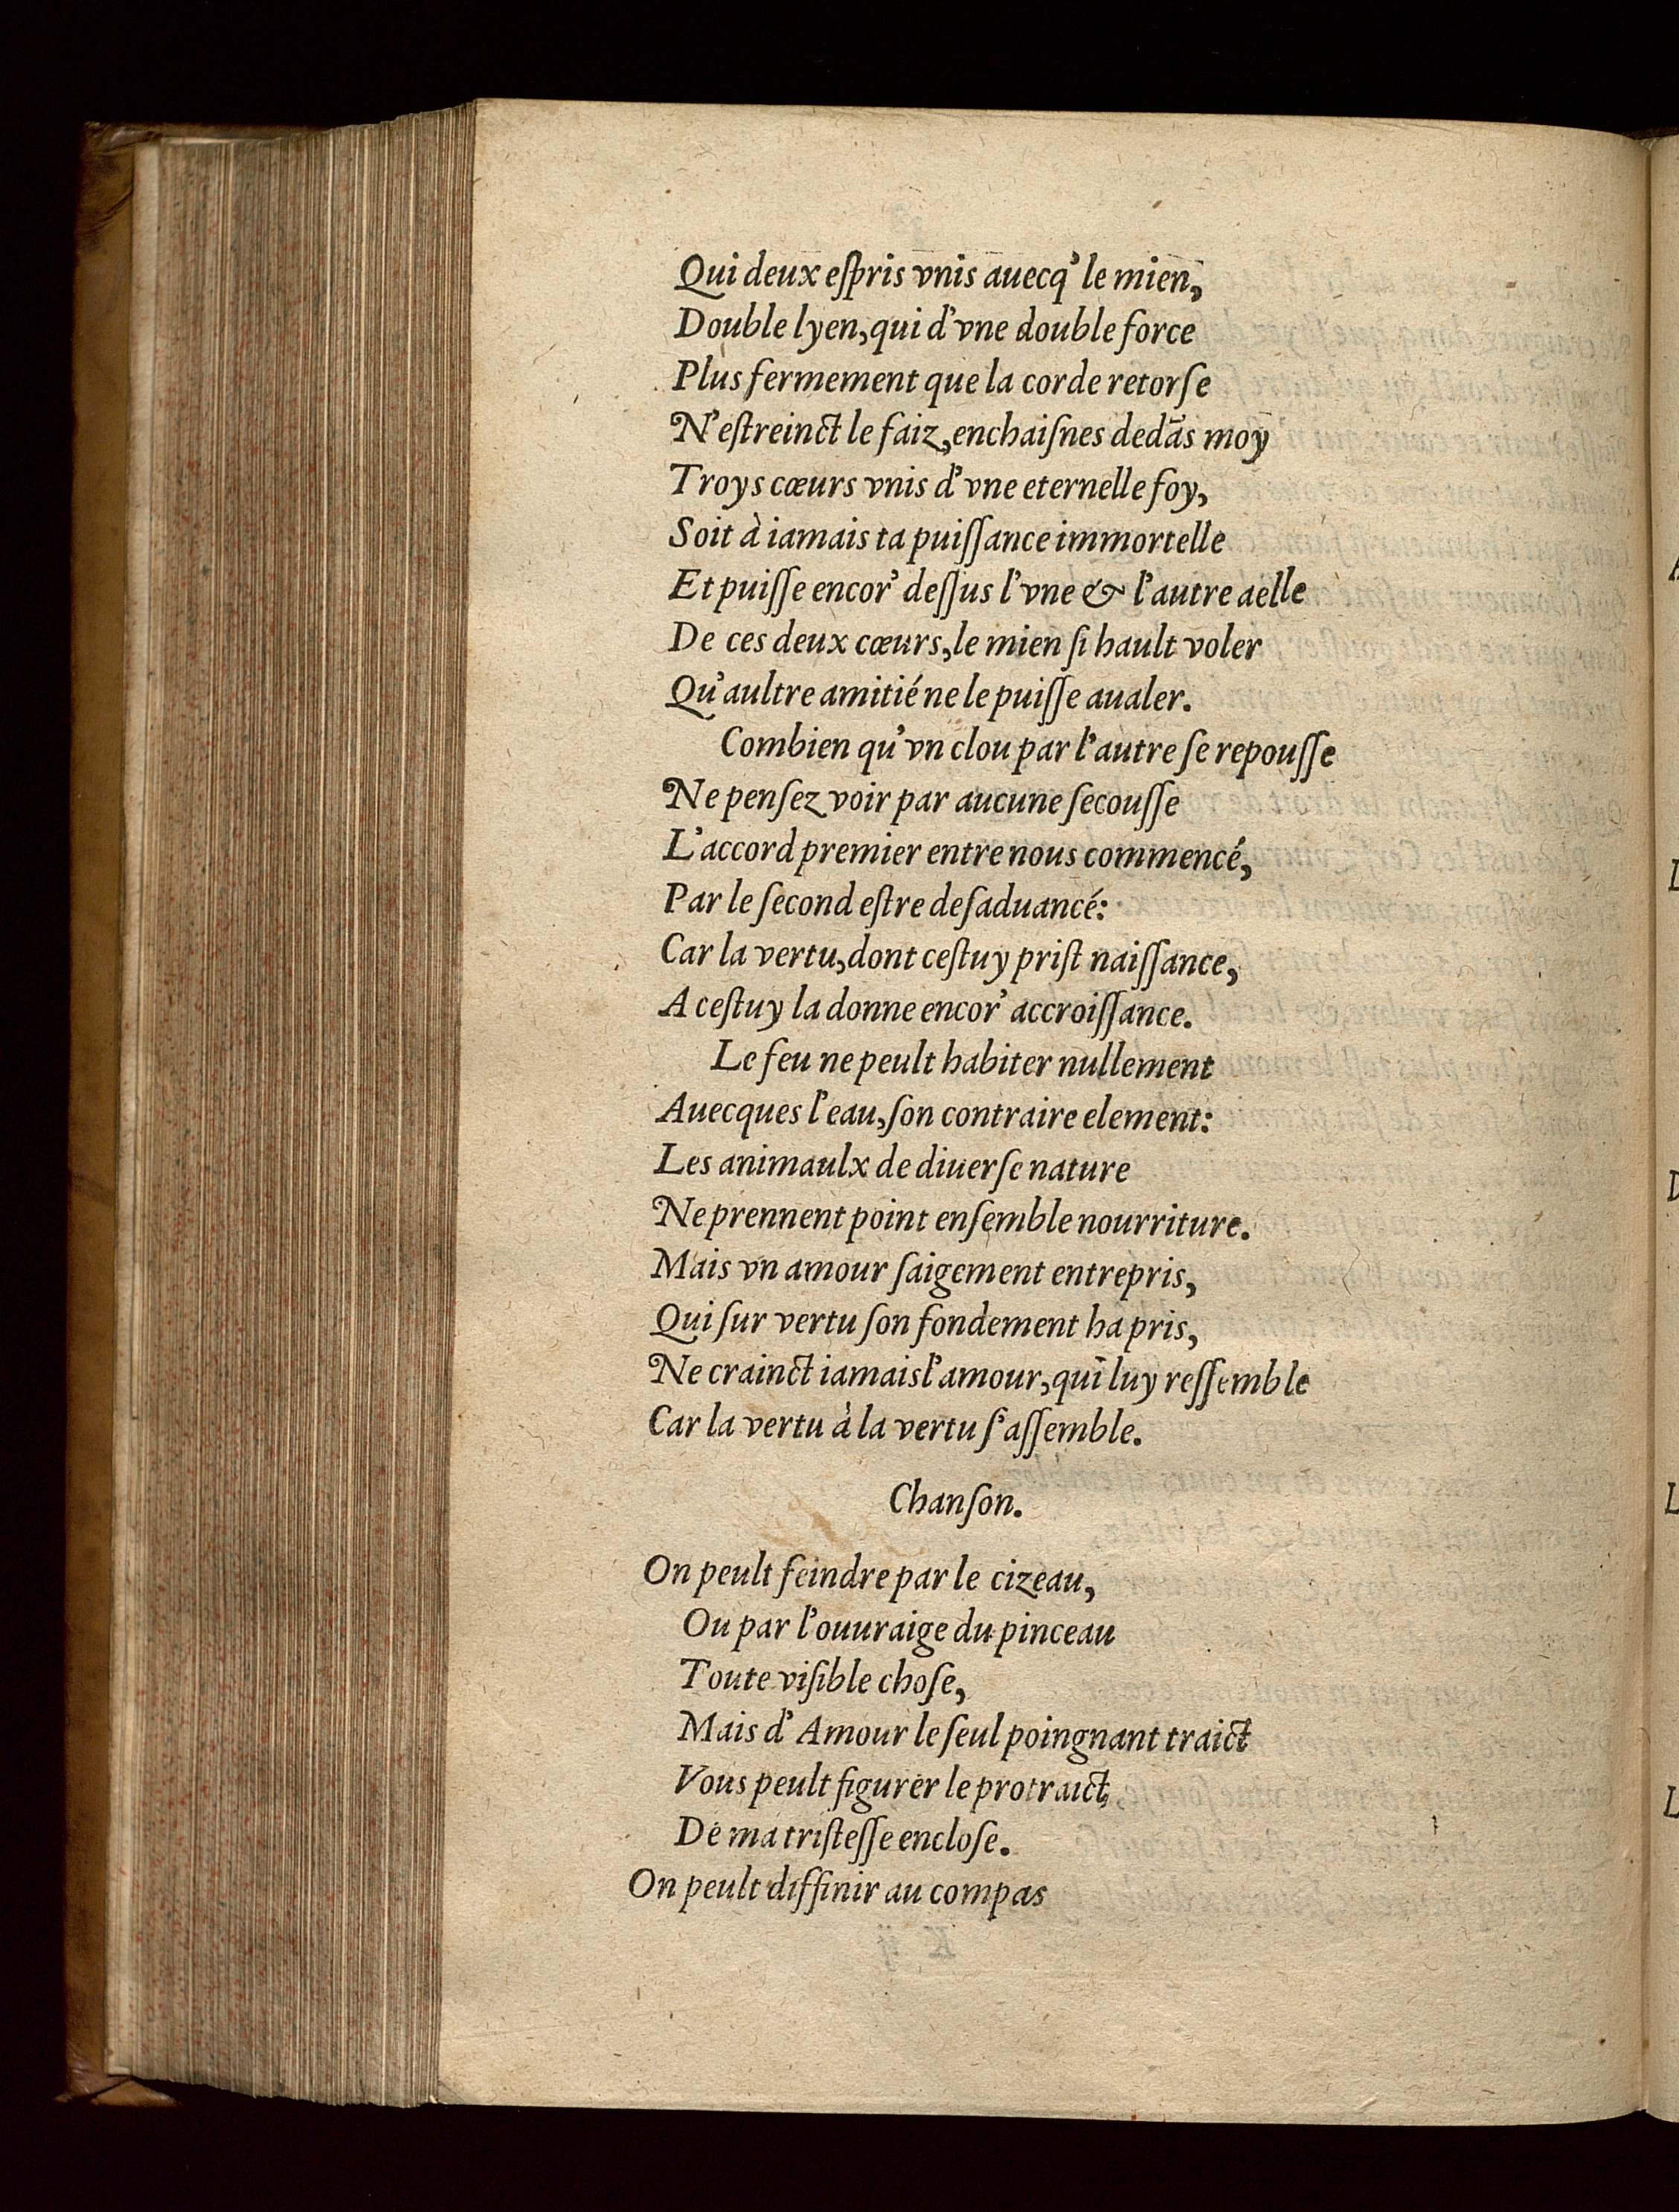 Qui deux eſpris vnis auecq' le mien,
Double lyen, qui d'vne double force
Plus fermement que la corde retorſe
N'eſtreinct le faiz, enchaiſnes dedãs moy
Troys cœurs vnis d'vne eternelle foy,
Soit à iamais ta puiſſance immortelle
Et puiſſe encor' deſſus l'vne & l'autre aelle
De ces deux cœurs, le mien ſi hault voler
Qu'aultre amitié ne le puiſſe aualer.
Combien qu'vn clou par l'autre ſe repouſſe
Ne penſez voir par aucune ſecouſſe
L'accord premier entre nous commencé,
Par le ſecond eſtre deſaduancé:
Car la vertu, dont ceſtuy priſt naiſſance,
A ceſtuy la donne encor' accroiſſance.
Le feu ne peult habiter nullement
Auecques l'eau, ſon contraire element:
Les animaulx de diuerſe nature
Ne prennent point enſemble nourriture.
Mais vn amour ſaigement entrepris,
Qui ſur vertu ſon fondement ha pris,
Ne crainct iamais l'amour, qui luy reſſemble
Car la vertu à la vertu ſ'aſſemble.
Chanſon.
On peult feindre par le cizeau,
Ou par l'ouuraige du pinceau
Toute viſible choſe,
Mais d'Amour le ſeul poingnant traict
Vous peult figurer le protraict,
De ma triſteſſe encloſe.
On peult diffinir au compas